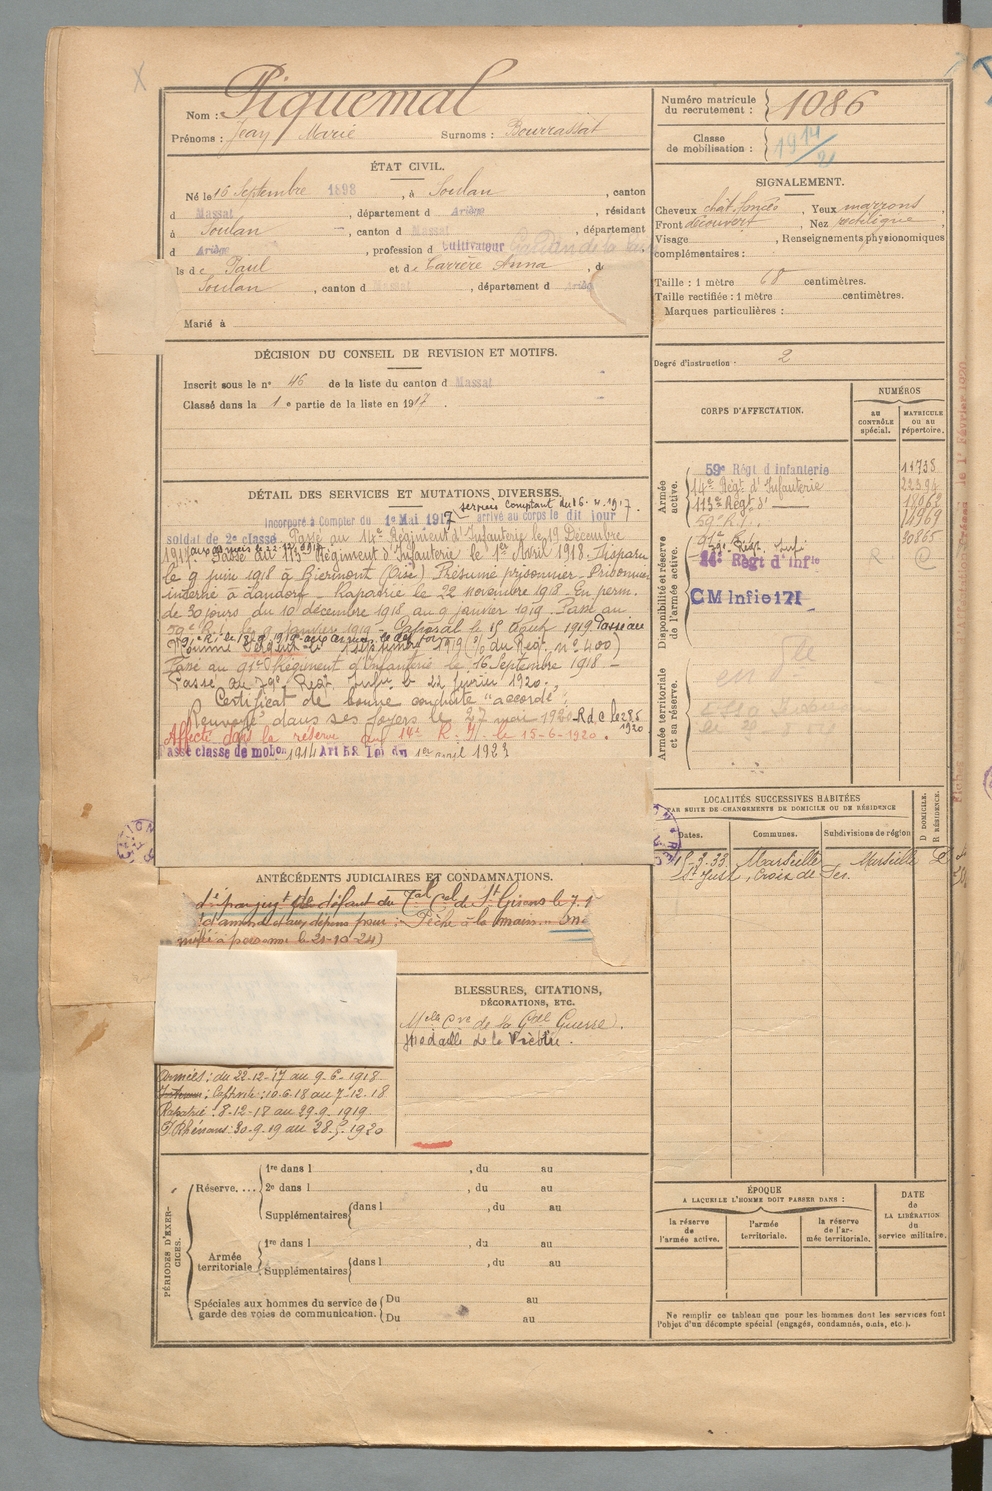 Nom : Piquemal
Prénoms : Jean Marie Surnoms : Bourrassat
Numéro matricule du recrutement : 1086
Classe de mobilisation : 1914/21
ÉTAT CIVIL.
Né le 16 Septembre 1898, à Soulan, canton
d Massat, département d Ariège, résidant
à Soulan, canton d Massat, département
d Ariège, profession d cultivateur
ls de Paul et de Carrère Anna, d
Soulan, canton d Massat, département d Ariège
Marié à
SIGNALEMENT.
Cheveux chât. foncés, Yeux marrons,
Front découvert, Nez rectiligne,
Visage , Renseignements physionomiques
complémentaires :
Taille : 1 mètre 68 centimètres.
Taille rectifiée : 1 mètre centimètres.
Marques particulières :
Degré d'instruction - 2
DÉCISION DU CONSEIL DE REVISION ET MOTIFS.
Inscrit sous le n° 46 de la liste du canton d Massat
Classé dans la 1e partie de la liste en 1917.
DÉTAIL DES SERVICES ET MUTATIONS DIVERSES.
services Comptant du 16. 4. 1917.
Incorporé à Compter du 1er Mai 1917 arrivé au corps le dit jour
soldat de 2e classe. Passé au 14e Régiment d'Infanterie le 19 Décembre
1917. Passé au 113e Régiment d'Infanterie le 1er Avril 1918. Disparu
le 9 juin 1918 à Biermont (Oise) Présumé prisonnier - Prisonnier
interné à Landorf - Rapatrié le 22 novembre 1918 - En perm.
de 30 jours du 10 décembre 1918 au 9 janvier 1919. Passé au
59e R.I. le 9 janvier 1919 - Caporal le 15 Août 1919 Passé au
91e R.I. le 18.9.1919
Nommé Sergent le septembre 1919 (O/ du Régt. n° 400)
Passé au 91e Régiment d'Infanterie le 16 Septembre 1918 -
Passé au 79e Régt. Infie le 22 février 1920.
Certificat de bonne conduite "accordé".
Renvoyé dans ses foyers le 27 mai 1920 - R.d.C le 28.5
1920.
Affecté dans la réserve au 14e R.I. le 15-6-1920.
asse classe de mobon 1914 Art 58 Loi du 1er avril 1923
CORPS D'AFFECTATION.
NUMÉROS
AU CONTRÔLE spécial.
MATRICULE OU AU répertoire.
Armée active.
59e Régt d'infanterie 11738
14e Régt d'Infanterie 22394
113e Régt d° 18062
59e R.I. 14969
91e 30865
79e Régt. Infi
Disponibilité et réserve de l'armée active.
14e Régt d'Infie R
CM Infie 171
Armée territoriale et sa réserve.
LOCALITÉS SUCCESSIVES HABITÉES
PAR SUITE DE CHANGEMENTS DE DOMICILE OU DE RÉSIDENCE
Dates. Communes. Subdivisions de région D DOMICILE. R RÉSIDENCE.
15-3-33. Marseille Marseille
St Just, Croix de
ANTÉCÉDENTS JUDICIAIRES ET CONDAMNATIONS.
défaut du Tal Cel de St Girons le 7.1
d'amende et aux dépens pour : Pêche à la main.
à personne le 21-10-24)
BLESSURES, CITATIONS,
DÉCORATIONS, ETC.
Mlle Cve de la Gde Guerre.
Médaille de la Victoire.
Armées : du 22-12-17 au 9-6-1918
Captivité : 10.6.18 au 7.12.18
Rapatrié : 8-12-18 au 29.9.1919
Rhénans : 30.9.19 au 28.5.1920
PÉRIODES D'EXERCICES.
Réserve. 1re dans l , du au
2e dans l , du au
Supplémentaires dans l , du au
Armée territoriale 1re dans l , du au
Supplémentaires dans l , du au
Spéciales aux hommes du service de garde des voies de communication. Du au
Du au
ÉPOQUE
A LAQUELLE L'HOMME DOIT PASSER DANS :
la réserve de l'armée active.
l'armée territoriale.
la réserve de l'armée territoriale.
DATE de LA LIBÉRATION du service militaire.
Ne remplir ce tableau que pour les hommes dont les services font
l'objet d'un décompte spécial (engagés, condamnés, omis, etc.).